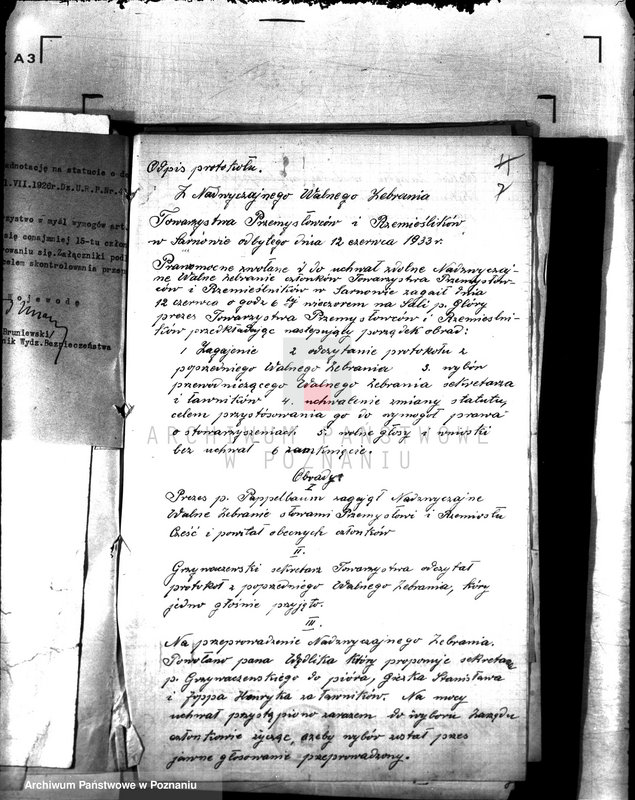 A3
adnotację na statucie o do
1.VII.1926r.Dz.U.R.P.Nr.
rzystwo w myśl wymogów art.
się conajmniej 15-tu człon
owaniu się. Załączniki pod
celem skontrolowania przep
jewodę
Bruniewski/
nik Wydz.Bezpieczeństwa
Odpis protokołu.
Z Nadwyczajnego Walnego Zebrania
Towarzystwa Przemysłowców i Rzemieślików
w Sarnowie odbytego dnia 12 czerwca 1933 r.
Prawomocne zwołane i do uchwał zdolne Nadzwyczaj-
ne Walne Zebranie członków Towarzystwa Przemysłow-
ców i Rzemieślników w Sarnowie zagaił dnia
12 czerwca o godz 6 tej wieczorem na Sali p. Glóry
prezes Towarzystwa Przemysłowców i Rzemieślni-
ków przedkładając następujący porządek obrad:
1 Zagajenie 2 odczytanie protokołu z
poprzedniego Walnego Zebrania 3. wybór
przewodniczącego Walnego Zebrania sekretarza
i ławników 4. uchwalenie zmiany statutu,
celem przystósowania go do wymogół prawa
o stowarzyszeniach 5. wolne głosy i wnioski
bez uchwał 6 zamknięcie.
Obrady
I
Prezes p. Pappelbaum zagajął Nadzwyczajne
Walne Zebranie słowami Przemysłowi i Rzemiosłu
Cześć i powitał obecnych członków
II.
Grzywaczewski sekretarz Towarzystwa odczytał
protokół z poprzedniego Walnego Zebrania, który
jedno głośnie przyjęto.
III.
Na przeprowadzenie Nadzwyczajnego Zebrania.
Powołano pana Wędlika który proponuje sekretarza
p. Grzywaczewskiego do pióra, Stanisława
i Henryka za ławników. Na mocy
uchwał przystąpiono zarazem do wyboru Zarządu
członkowie życząc, ażeby wybór został przez
jawne głosowanie przeprowadzony.
ARCHIWUM PAŃSTWOWE
W POZNANIU
Archiwum Państwowe w Poznaniu